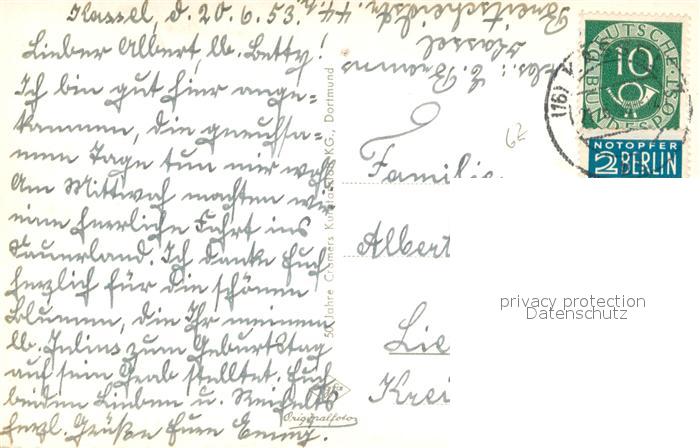 Kassel, d. 20.6.53.
Lieber Albert, lb. Betty!
Ich bin gut hier ange-
kommen, die geruhsa-
men Tage tun mir wohl
Am Mittwoch machten wir
eine herrliche Fahrt ins
Sauerland. Ich danke Euch
herzlich für die schönen
Blumen, die Ihr meinem
lb. Julius zum Geburtstag
auf sein Grab stelltet. Euch
beiden Lieben u.
herzl. Grüße Eure
Abs.:
Kassel
Breitscheidstr. 44
50 Jahre Cramers Kunstanstalt KG., Dortmund
Originalfoto
Familie
Albert
Lie
Krei
62
DEUTSCHE
BUNDESPOST
10
NOTOPFER
2 BERLIN
(16)
privacy protection
Datenschutz